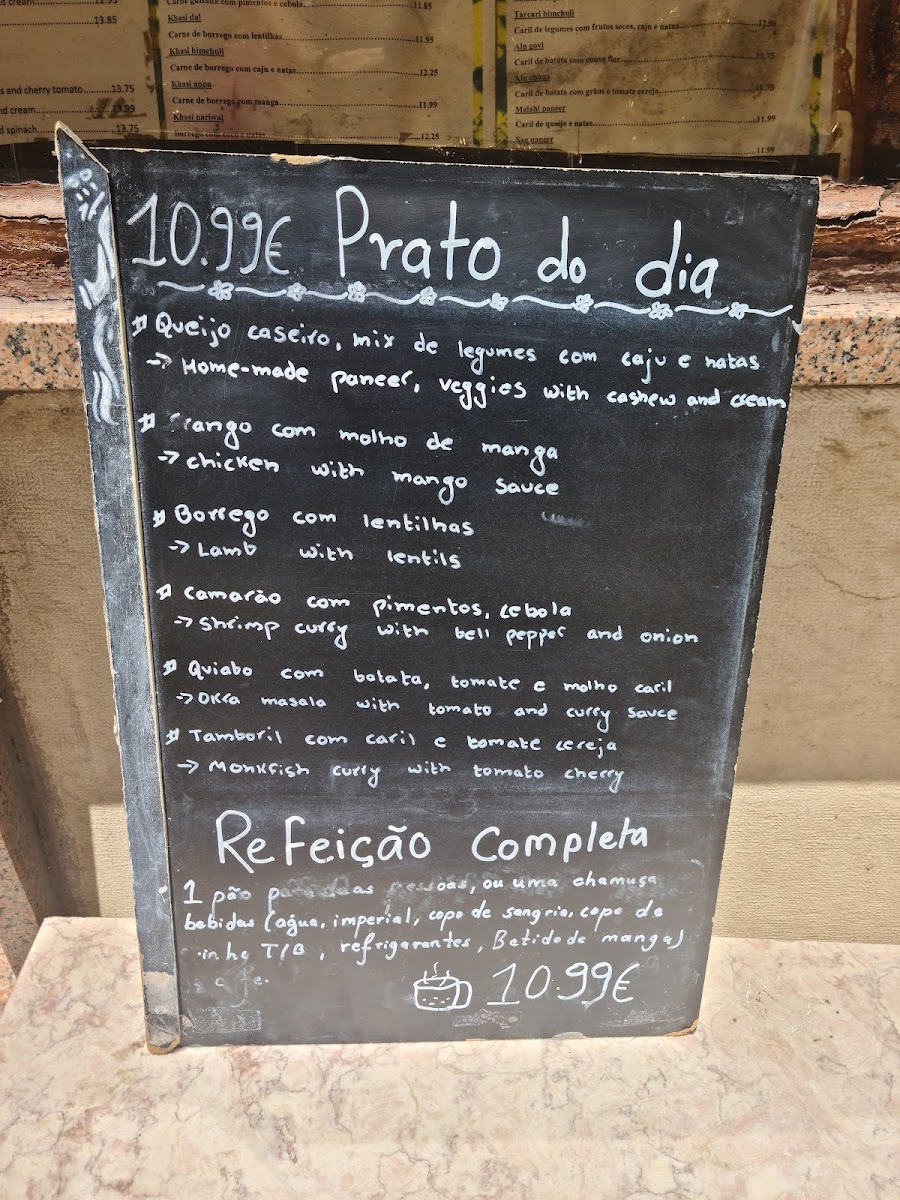 d cream 12.95
13.85
s and cherry tomato..........13.75
nd cream..........13.99
d spinach..........13.75
Carne guisada com pimentos e cebola..........11.85
Khasi dal
Carne de borrego com lentilhas..........11.95
Khasi himchuli
Carne de borrego com caju e natas..........12.25
Khasi anna
Carne de borrego com manga..........11.99
Khasi nariwal
Borrego com coco e natas..........12.25
Tarcari himchuli
Caril de legumes com frutos secos, caju e natas..........12.50
Alu govi
Caril de batata com couve flor..........11.75
Alu chana
Caril de batata com grãos e tomate cereja..........11.75
Malahi paneer
Caril de queijo e natas..........11.99
Sag paneer
11.99
10.99€ Prato do dia
Queijo caseiro, mix de legumes com caju e natas
→ Home-made paneer, veggies with cashew and cream
Frango com molho de manga
→ chicken with mango sauce
Borrego com lentilhas
→ Lamb with lentils
camarão com pimentos, cebola
→ shrimp curry with bell pepper and onion
Quiabo com batata, tomate e molho caril
→ Okra masala with tomato and curry sauce
Tamboril com caril e tomate cereja
→ Monkfish curry with tomato cherry
Refeição Completa
1 pão para duas pessoas, ou uma chamusa
bebidas (agua, imperial, copo de sangria, copo de
vinho T/B, refrigerantes, Batido de manga)
10.99€